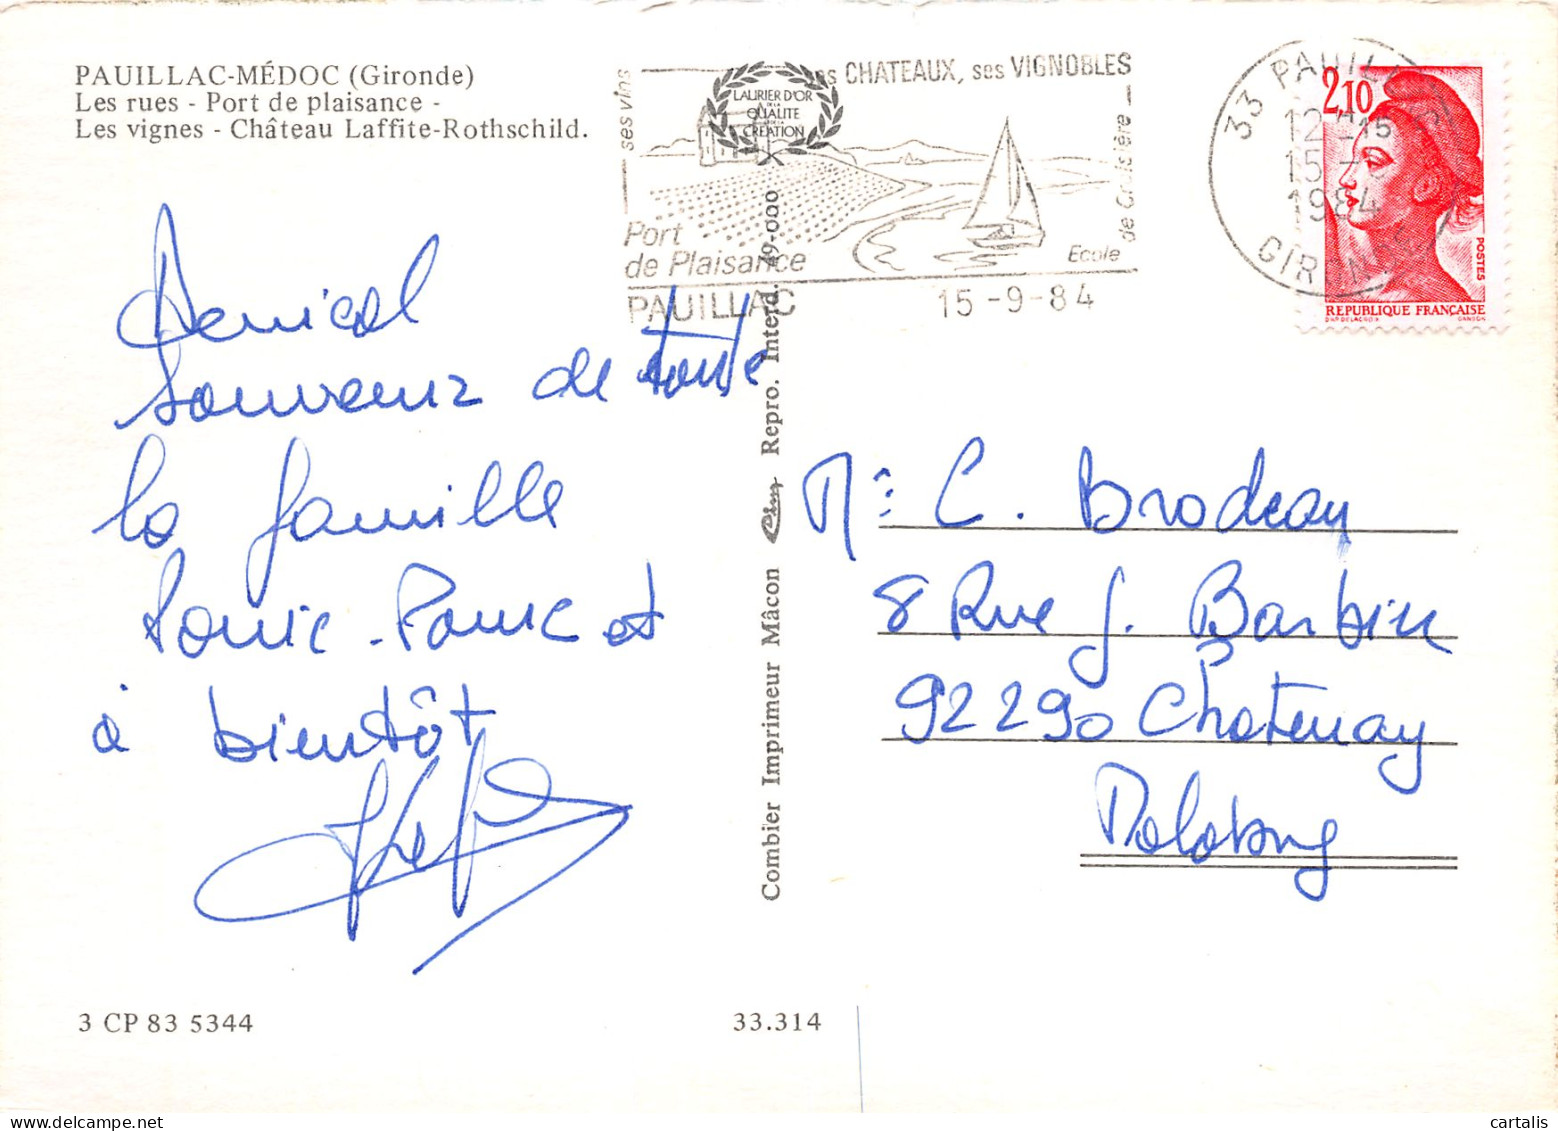 PAUILLAC-MÉDOC (Gironde)
Les rues - Port de plaisance -
Les vignes - Château Laffite-Rothschild.
ses vins
ses CHATEAUX, ses VIGNOBLES
LAURIER D'OR
DE LA
QUALITE
DE LA
CREATION
Port
de Plaisance
Ecole
de Croisière
PAUILLAC
15-9-84
33 PAUILLAC
12 H 15
15-9
1984
GIRONDE
2,10
POSTES
REPUBLIQUE FRANÇAISE
D'AP. DELACROIX GANDON
Amical
souvenir de toute
la famille
et
à bientôt
Combier Imprimeur Mâcon Cim Repro. Interd. 49-000
Me C. Brodeau
8 Rue J. Barbin
92290 Chatenay
Malabry
3 CP 83 5344
33.314
cartalis